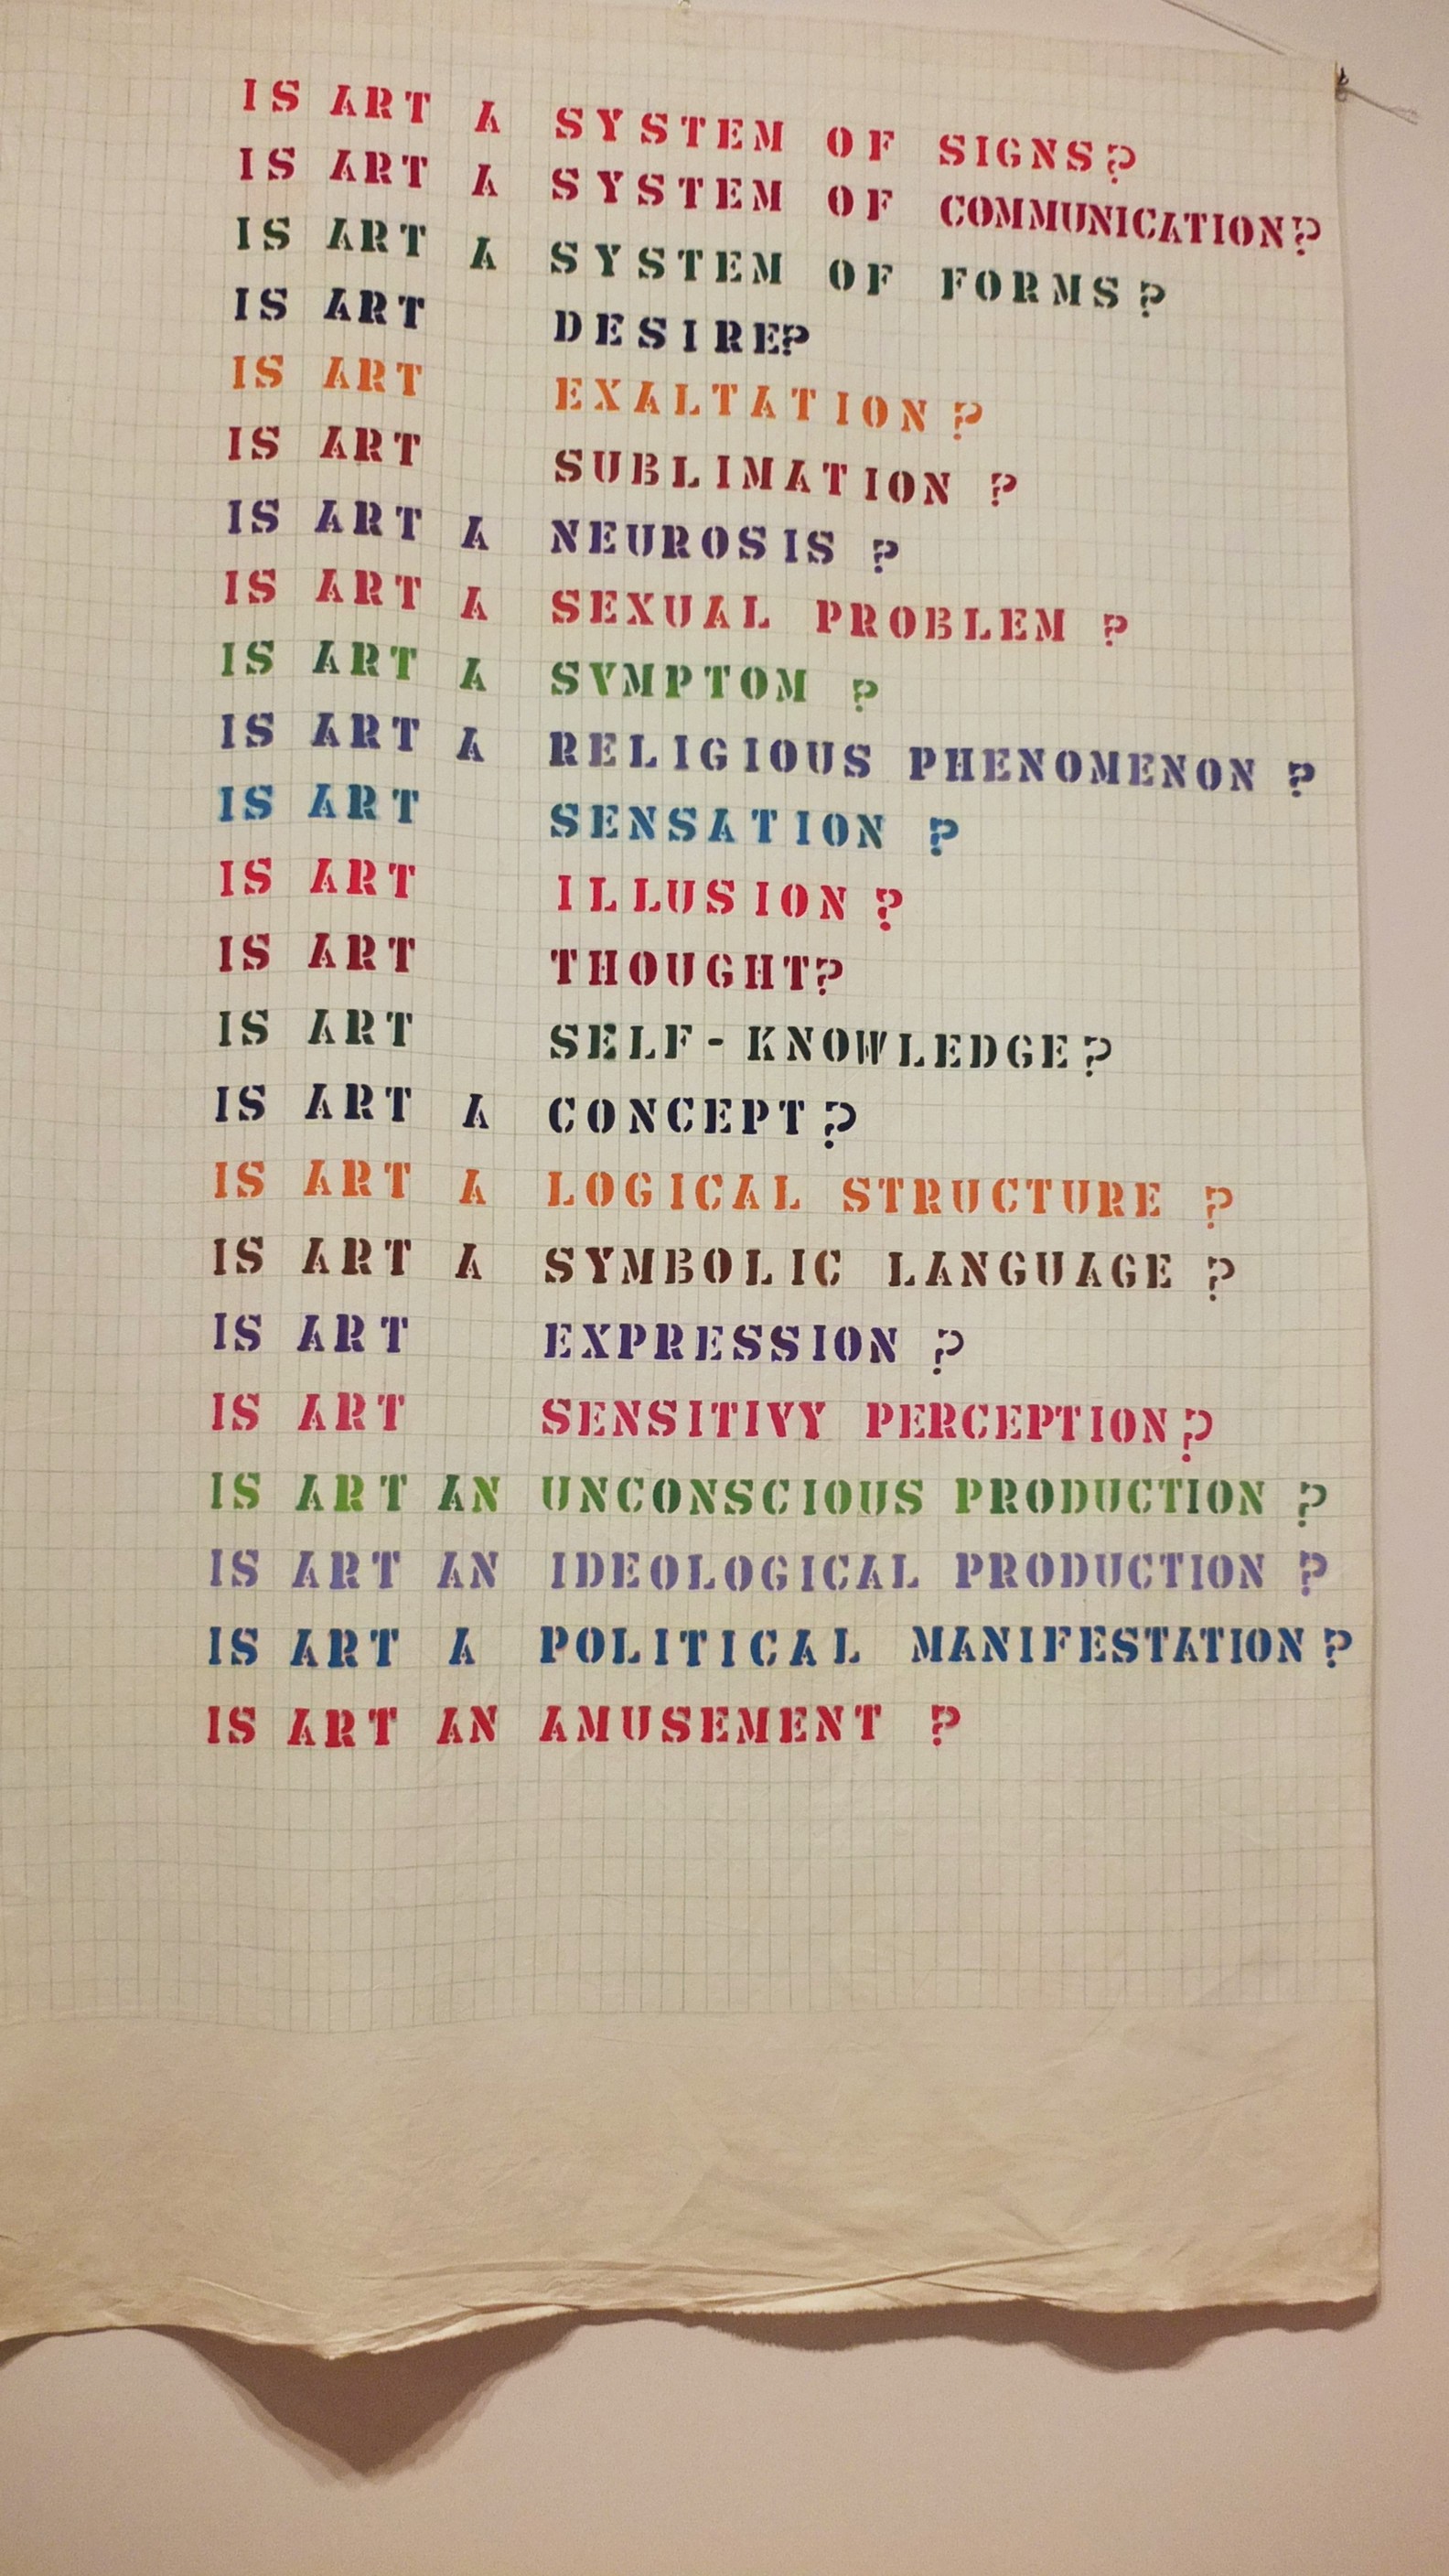 IS ART A SYSTEM OF SIGNS?
IS ART A SYSTEM OF COMMUNICATION?
IS ART A SYSTEM OF FORMS?
IS ART DESIRE?
IS ART EXALTATION?
IS ART SUBLIMATION ?
IS ART A NEUROSIS ?
IS ART A SEXUAL PROBLEM ?
IS ART A SYMPTOM ?
IS ART A RELIGIOUS PHENOMENON ?
IS ART SENSATION ?
IS ART ILLUSION ?
IS ART THOUGHT?
IS ART SELF-KNOWLEDGE?
IS ART A CONCEPT?
IS ART A LOGICAL STRUCTURE ?
IS ART A SYMBOLIC LANGUAGE ?
IS ART EXPRESSION ?
IS ART SENSITIVY PERCEPTION?
IS ART AN UNCONSCIOUS PRODUCTION ?
IS ART AN IDEOLOGICAL PRODUCTION ?
IS ART A POLITICAL MANIFESTATION?
IS ART AN AMUSEMENT ?